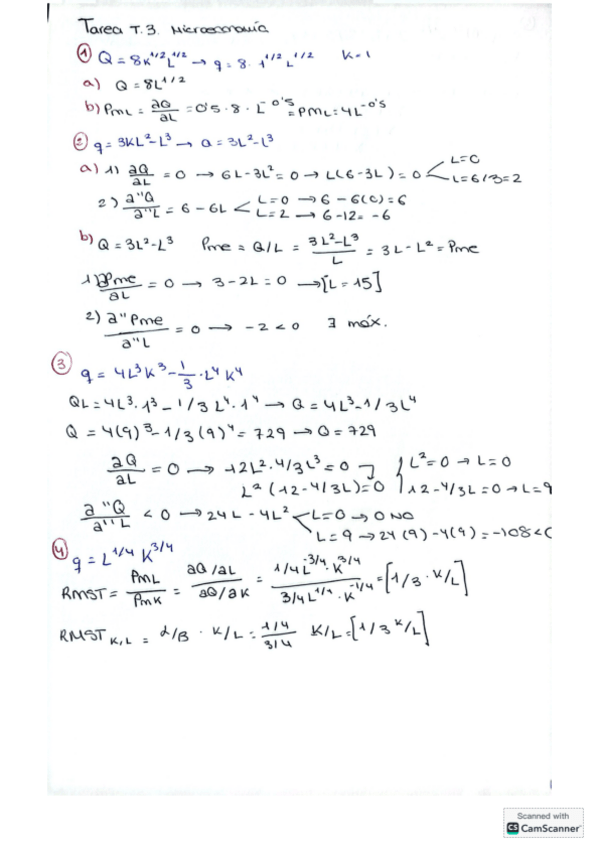 Tarea T.3. Microeconomía
① Q = 8K^1/2 L^1/2 → q = 8 · 1^1/2 L^1/2 K = 1
a) Q = 8L^1/2
b) PmL = ∂Q/∂L = 0'5 · 8 · L^-0'5 = PmL = 4L^-0'5
② q = 3KL² - L³ → Q = 3L² - L³
a) 1) ∂Q/∂L = 0 → 6L - 3L² = 0 → L(6 - 3L) = 0 < L = 0
L = 6/3 = 2
2) ∂"Q/∂"L = 6 - 6L < L = 0 → 6 - 6(0) = 6
L = 2 → 6 - 12 = -6
b) Q = 3L² - L³ Pme = Q/L = 3L² - L³/L = 3L - L² = Pme
1) ∂Pme/∂L = 0 → 3 - 2L = 0 → [L = 15]
2) ∂"Pme/∂"L = 0 → -2 < 0 ∃ máx.
③ q = 4L³K³ - 1/3 · L⁴K⁴
QL = 4L³ · 1³ - 1/3 L⁴ · 1⁴ → Q = 4L³ - 1/3L⁴
Q = 4(9)³ - 1/3(9)⁴ = 729 → Q = 729
∂Q/∂L = 0 → 12L² · 4/3L³ = 0 L² = 0 → L = 0
L²(12 - 4/3L) = 0 12 - 4/3L = 0 → L = 9
∂"Q/∂"L < 0 → 24L - 4L² < L = 0 → 0 NO
L = 9 → 24(9) - 4(9) = -108 < 0
④ q = L^1/4 K^3/4
RMST = PmL/PmK = ∂Q/∂L / ∂Q/∂K = 1/4L^-3/4 · K^3/4 / 3/4L^1/4 · K^-1/4 = [1/3 · K/L]
RMST K,L = α/B · K/L = 1/4 / 3/4 K/L = [1/3 K/L]
Scanned with
CS CamScanner